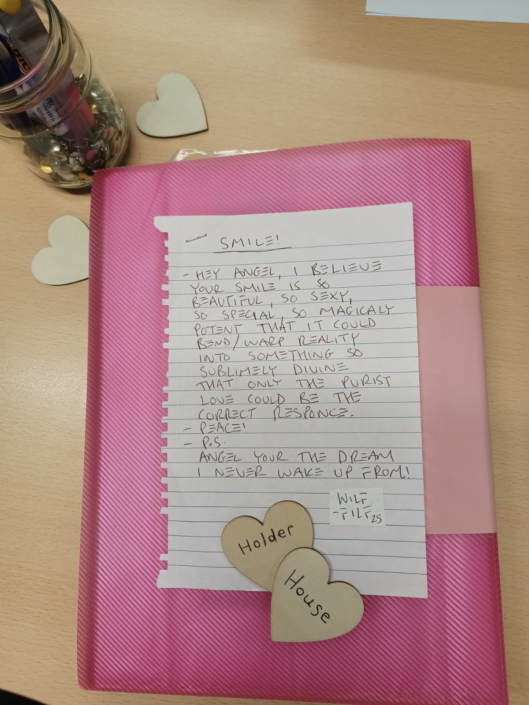 SMILE!
- HEY ANGEL, I BELIEVE
YOUR SMILE IS SO
BEAUTIFUL, SO SEXY,
SO SPECIAL, SO MAGICALY
POTENT THAT IT COULD
BEND/WARP REALITY
INTO SOMETHING SO
SUBLIMELY DIVINE
THAT ONLY THE PURIST
LOVE COULD BE THE
CORRECT RESPONCE.
- PEACE!
- P.S.
ANGEL YOUR THE DREAM
I NEVER WAKE UP FROM!
WILF
-FILF25
Holder
House